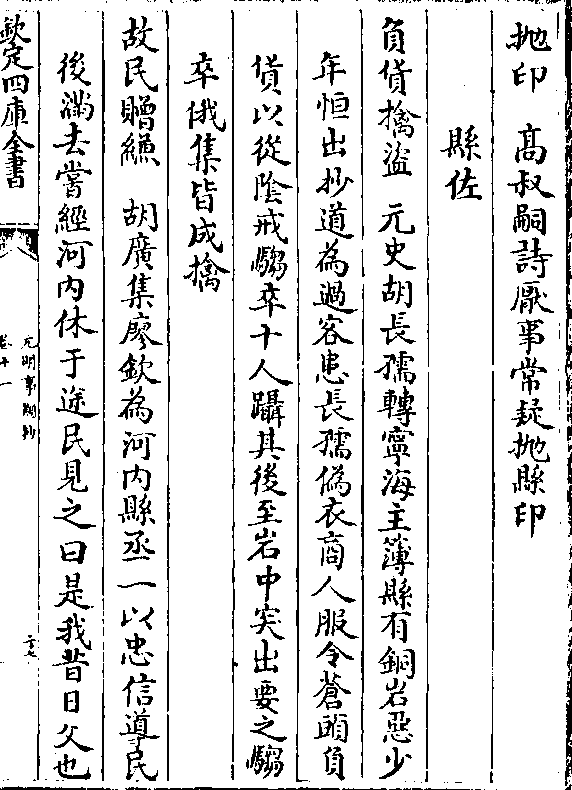 拋印　高叔嗣詩厭事常疑拋縣印
縣佐
負貨擒盜　元史胡長孺轉寧海主簿縣有銅岩惡少
年恒出抄道為過客患長孺偽衣商人服令蒼頭負
貨以從陰戒騶卒十人躡其後至岩中突出要之騶
卒俄集皆成擒
故民贈縑　胡廣集廖欽為河内縣丞一以忠信導民
後滿去嘗經河内休于途民見之曰是我昔日父也
欽定四庫全書
元明事類鈔
卷十一
二十七